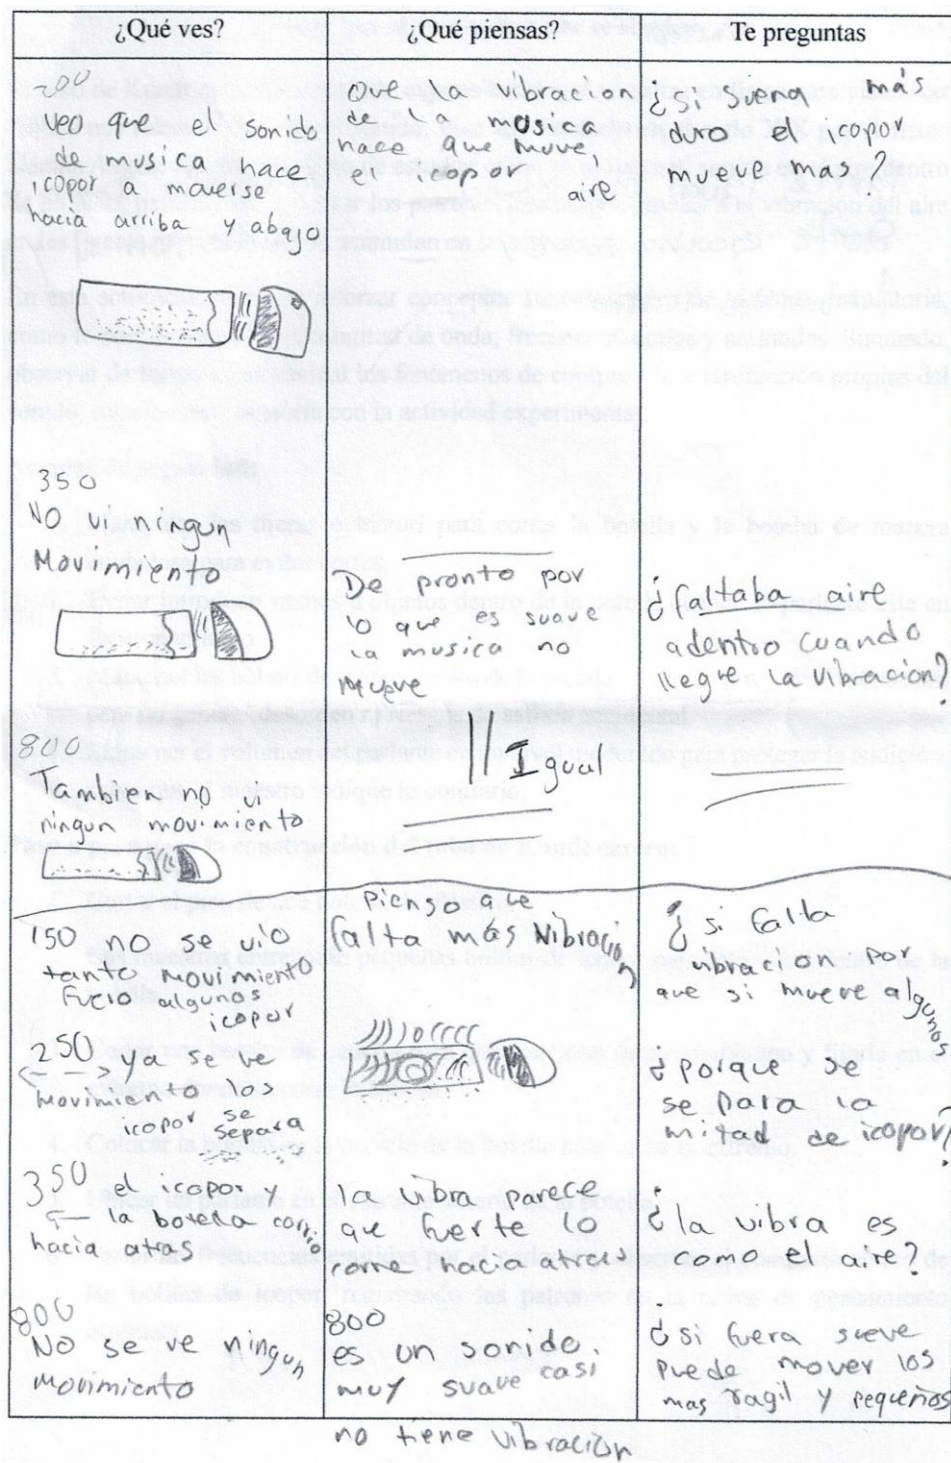 ¿Qué ves?
¿Qué piensas?
Te preguntas
veo que el sonido
de musica hace
icopor a moverse
hacia arriba y abajo
Que la vibracion
de la musica
hace que mueve
el icopor al
aire
¿Si suena más
duro el icopor
mueve mas?
350
No vi ningun
Movimiento
De pronto por
lo que es suave
la musica no
mueve
¿faltaba aire
adentro cuando
llegre la vibracion?
800
Tambien no vi
ningun movimiento
Igual
150 no se vio
tanto movimiento
algunos
icopor
Pienso que
falta más vibracion
¿si falta
vibracion por
que si mueve algunos
250 ya se ve
movimiento
icopor se
separa
¿porque se
separa la
mitad de icopor?
350 el icopor y
la botella corrio
hacia atras
la vibra parece
que fuerte lo
corre hacia atras
¿la vibra es
como el aire?
800
No se ve ningun
movimiento
800
es un sonido
muy suave casi
no tiene vibracion
¿si fuera sueve
puede mover los
mas fragil y pequeños